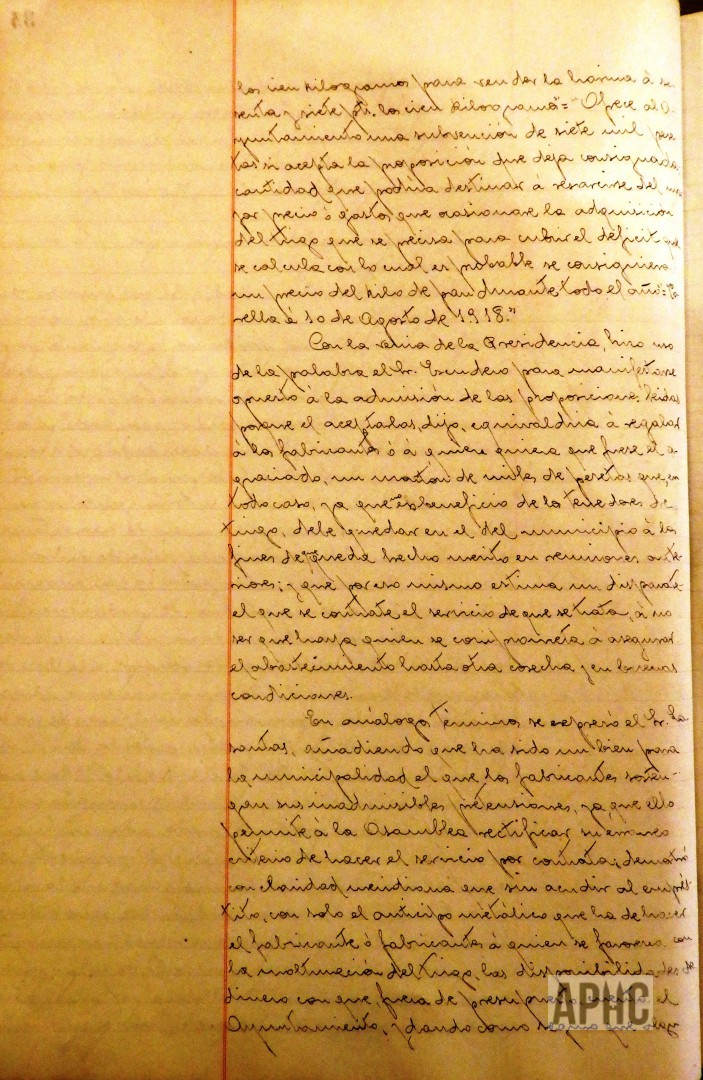 los cien kilogramos para vender la harina á se-
senta y siete pts. los cien kilogramos = Ofrece al A-
yuntamiento una subvención de siete mil pese-
tas si acepta la proposición que deja consignada,
cantidad que podria destinar á resarcirse del ma-
yor precio ó gastos que ocasionare la adquisición
del trigo que se precisa para cubrir el déficit que
se calcula con lo cual es probable se consiguiera
un precio del kilo de pan durante todo el año =
rella á 10 de Agosto de 1918."
Con la venia de la Presidencia, hizo uso
de la palabra el Sr. Escudero para manifestarse
opuesto á la admisión de las proposiciones leidas
porque el aceptarlas, dijo, equivaldria á regalar
á los fabricantes ó á quien quiera que fuese el a-
graciado, un montón de miles de pesetas que, en
todo caso, ya que es beneficio de los tenedores de
trigo, debe quedar en el del municipio á los
fines de que queda hecho mérito en reuniones ante-
riores; y que por eso mismo estima un disparate
el que se contrate el servicio de que se trata, á no
ser que haya quien se comprometa á asegurar
el abastecimiento hasta otra cosecha y en buenas
condiciones.
En análogos términos se expresó el Sr. La-
santas, añadiendo que ha sido un bien para
la municipalidad el que los fabricantes sosten-
gan sus inadmisibles pretensiones, ya que ello
permite á la Asamblea rectificar su erroneo
criterio de hacer el servicio por contrata; demostró
con claridad meridiana que sin acudir al emprés-
tito, con solo el anticipo metálico que ha de hacer
el fabricante ó fabricantes á quien se favorezca con
la molturación del trigo, las disponibilidades de
dinero con que, fuera de presupuesto cuenta el
Ayuntamiento, y dando como
APHC